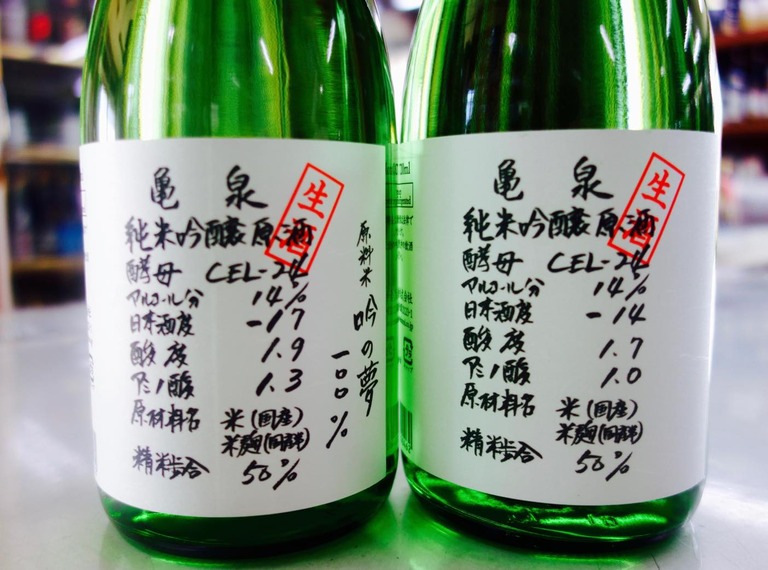 亀泉
生酒
純米吟醸原酒
酵母 CEL-24
アルコール分 14%
日本酒度 -17
酸度 1.9
アミノ酸 1.3
原材料名 米(国産)
米麹(国産米)
精米歩合 50%
原料米 吟の夢 一〇〇%
亀泉
生酒
純米吟醸原酒
酵母 CEL-24
アルコール分 14%
日本酒度 -14
酸度 1.7
アミノ酸 1.0
原材料名 米(国産)
米麹(国産米)
精米歩合 50%